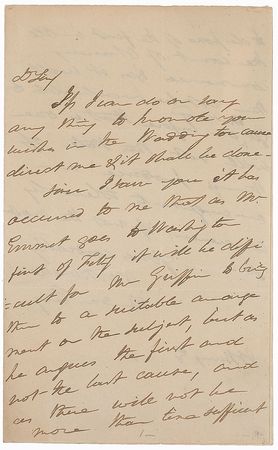 Dr Sir
If I can do or say
any thing to promote your
wishes in the Waddington cause
direct me & it shall be done -
Since I saw you it has
occurred to me that as Mr
Emmet goes to Washington
first of Feby it will be diffi
=cult for Mr Griffin to bring
them to a suitable arrange
ment on the subject, but as
he argues the first and
not the last cause, and
as there will not be
more than time sufficient